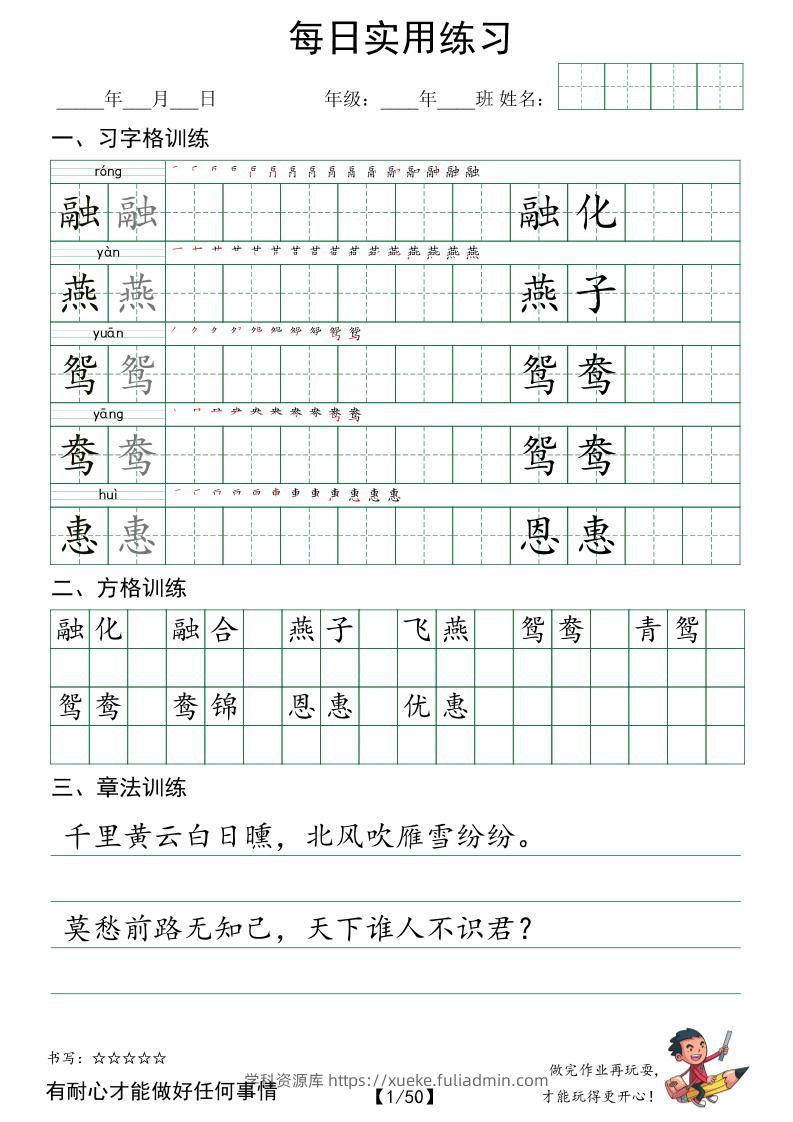 每日实用练习
_____年___月___日 年级：____年____班 姓名：
一、习字格训练
róng
融 融 融 化
yàn
燕 燕 燕 子
yuān
鸳 鸳 鸳 鸯
yāng
鸯 鸯 鸳 鸯
huì
惠 惠 恩 惠
二、方格训练
融化 融合 燕子 飞燕 鸳鸯 青鸳
鸳鸯 鸯锦 恩惠 优惠
三、章法训练
千里黄云白日曛，北风吹雁雪纷纷。
莫愁前路无知己，天下谁人不识君？
书写：☆☆☆☆☆
有耐心才能做好任何事情
学科资源库 https://xueke.fuliadmin.com
【1/50】
做完作业再玩耍，
才能玩得更开心！